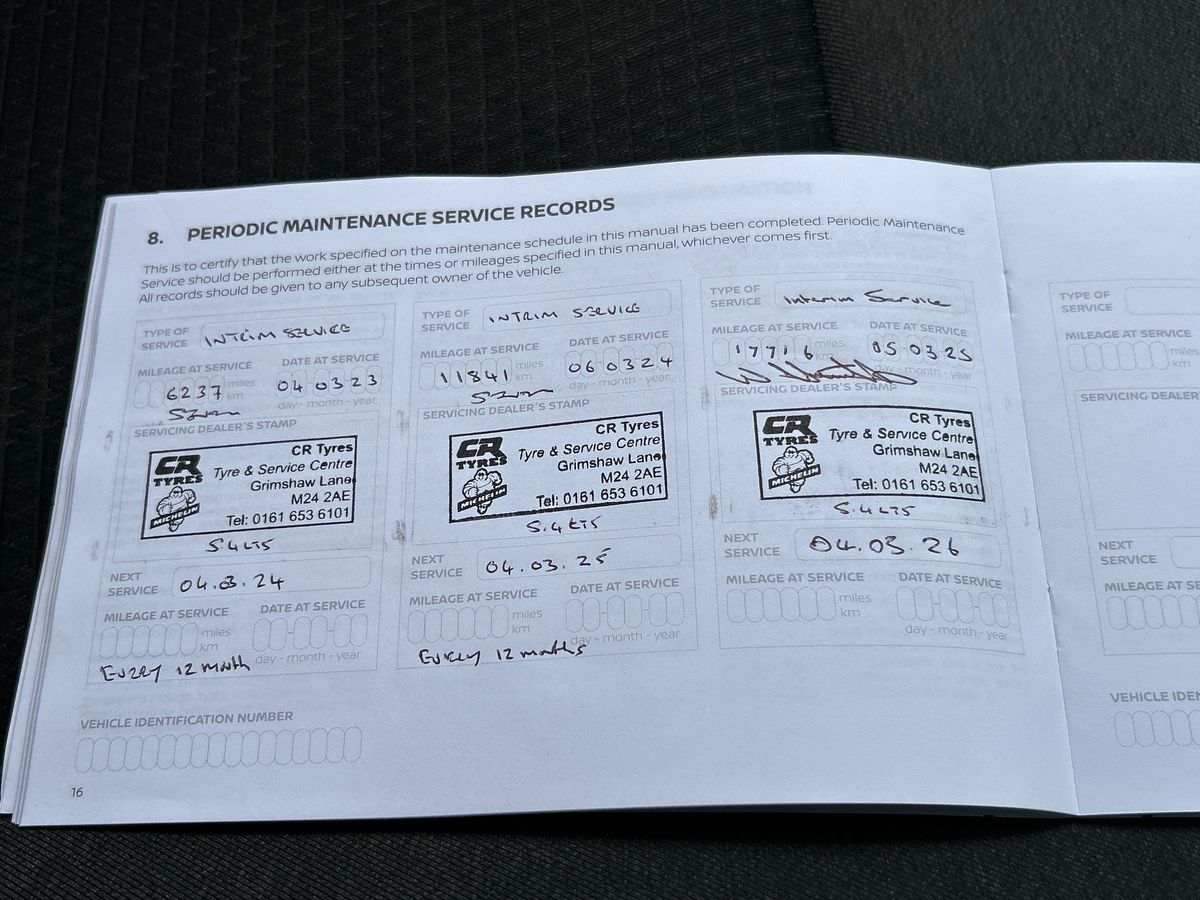 8. PERIODIC MAINTENANCE SERVICE RECORDS
This is to certify that the work specified on the maintenance schedule in this manual has been completed. Periodic Maintenance
Service should be performed either at the times or mileages specified in this manual, whichever comes first.
All records should be given to any subsequent owner of the vehicle.
TYPE OF
SERVICE INTRIM SERVICE
MILEAGE AT SERVICE DATE AT SERVICE
6237 miles
km
04-03-23
day - month - year
SERVICING DEALER'S STAMP
CR
TYRES
MICHELIN
CR Tyres
Tyre & Service Centre
Grimshaw Lane
M24 2AE
Tel: 0161 653 6101
5.4 LTS
NEXT
SERVICE 04.03.24
MILEAGE AT SERVICE DATE AT SERVICE
miles
km
day - month - year
EVERY 12 month
TYPE OF
SERVICE INTRIM SERVICE
MILEAGE AT SERVICE DATE AT SERVICE
11841 miles
km
06-03-24
day - month - year
SERVICING DEALER'S STAMP
CR
TYRES
MICHELIN
CR Tyres
Tyre & Service Centre
Grimshaw Lane
M24 2AE
Tel: 0161 653 6101
5.4 LTS
NEXT
SERVICE 04.03.25
MILEAGE AT SERVICE DATE AT SERVICE
miles
km
day - month - year
EVERY 12 months
TYPE OF
SERVICE Interim Service
MILEAGE AT SERVICE DATE AT SERVICE
17716 miles
km
05-03-25
day - month - year
SERVICING DEALER'S STAMP
CR
TYRES
MICHELIN
CR Tyres
Tyre & Service Centre
Grimshaw Lane
M24 2AE
Tel: 0161 653 6101
5.4 LTS
NEXT
SERVICE 04.03.26
MILEAGE AT SERVICE DATE AT SERVICE
miles
km
day - month - year
VEHICLE IDENTIFICATION NUMBER
16
TYPE OF
SERVICE
MILEAGE AT SERVICE
miles
km
SERVICING DEALER
NEXT
SERVICE
MILEAGE AT SERV
miles
km
VEHICLE IDEN